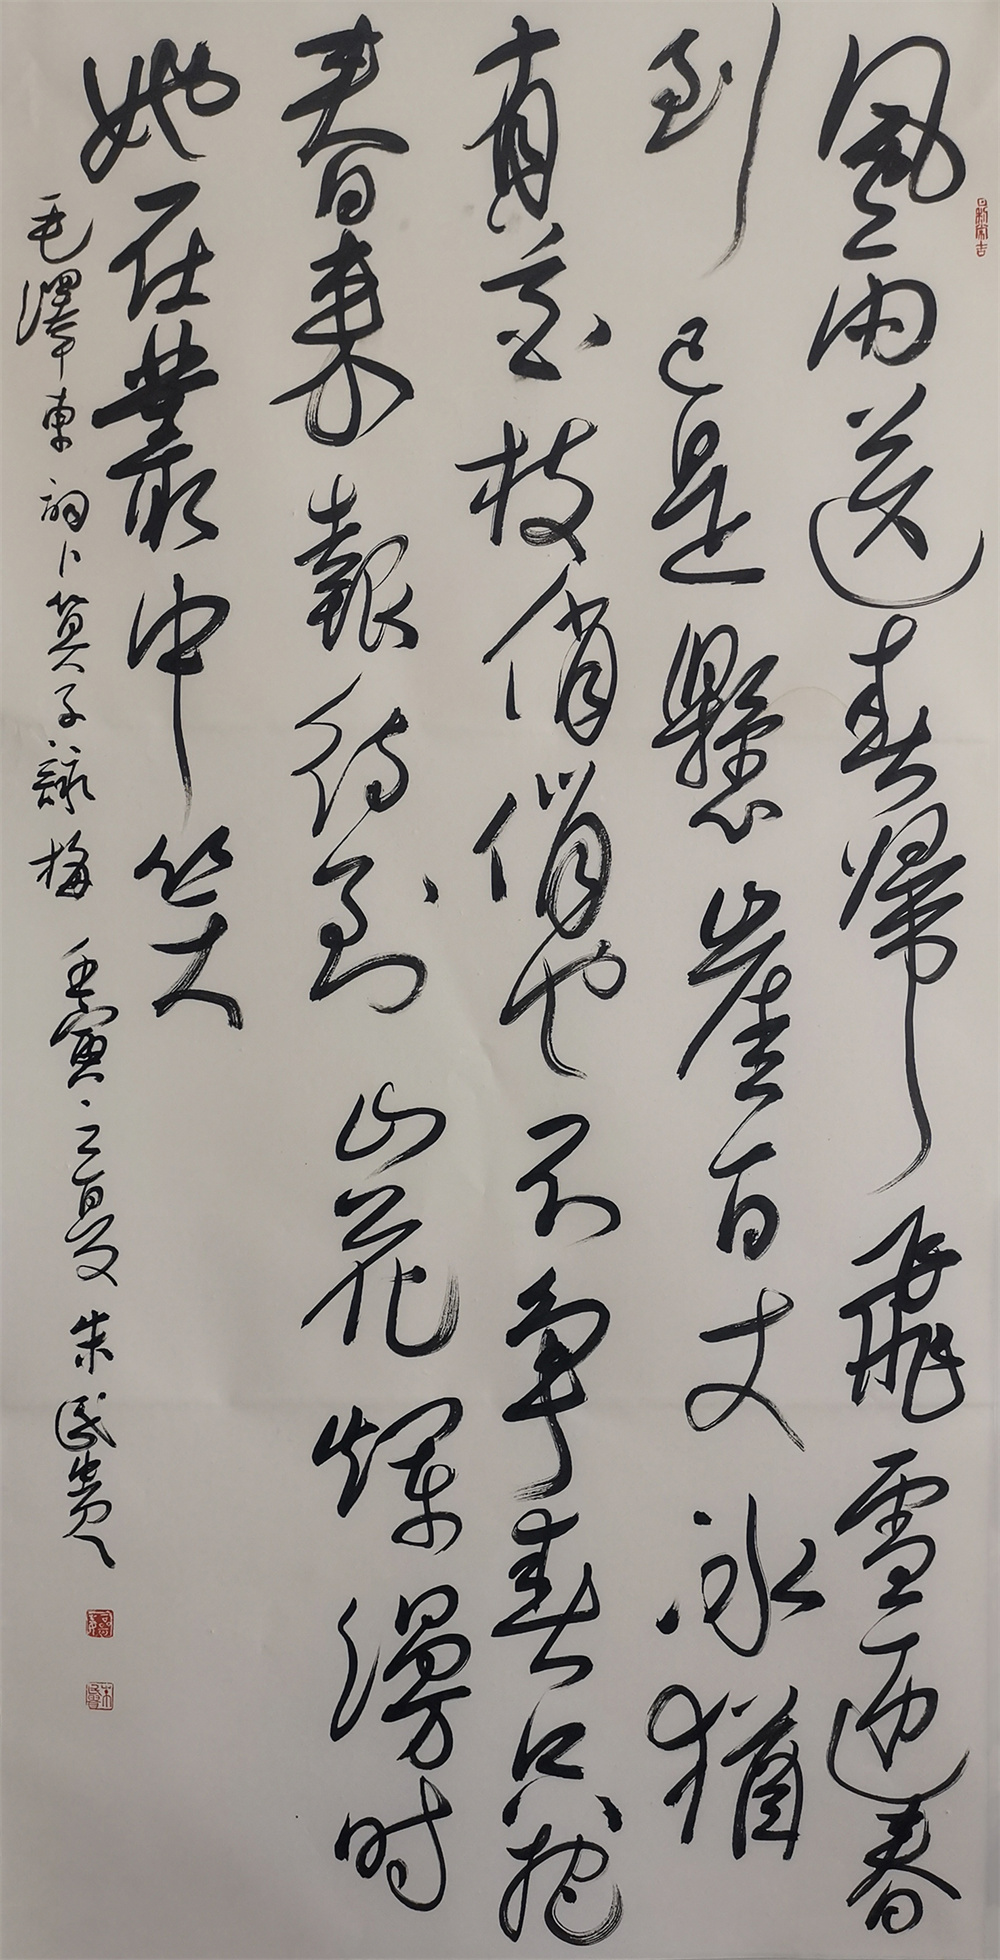 風雨送春歸飛雪迎春
到已是懸崖百丈冰猶
有花枝俏俏也不争春只把
春来報待到山花爛漫时
她在叢中笑
毛澤東詞卜算子詠梅 壬寅之夏 朱